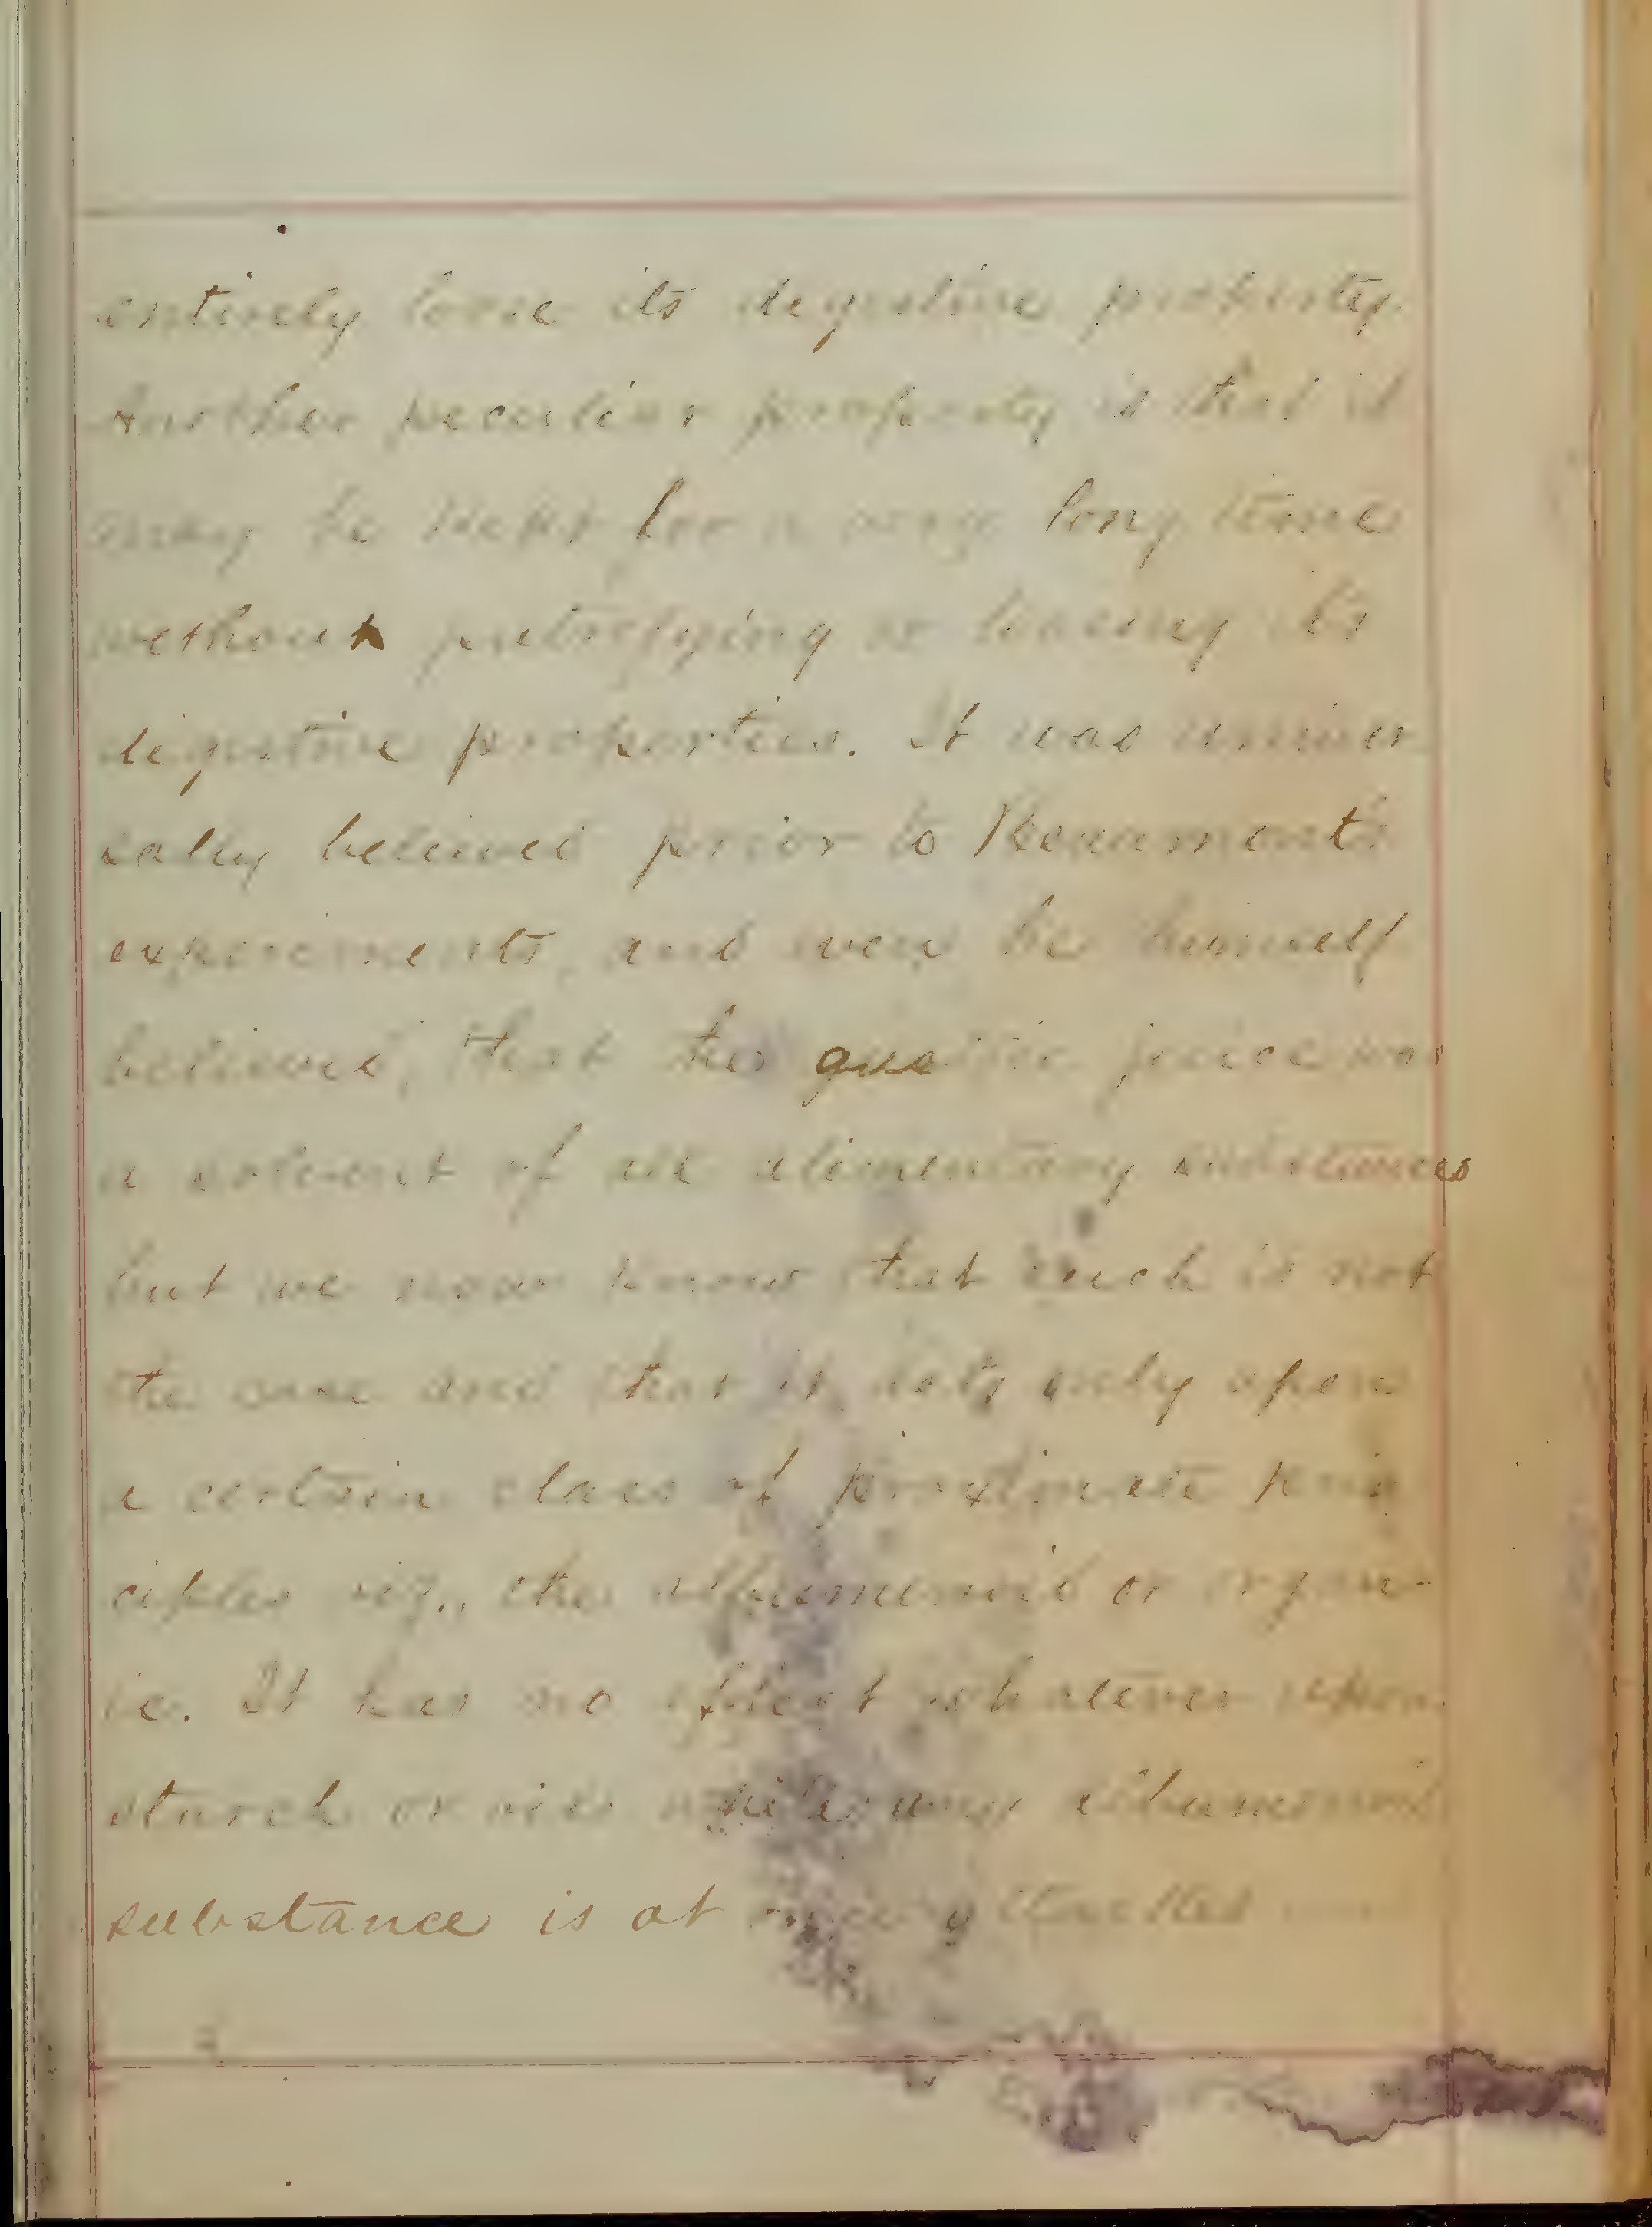 entirely loose its degestive property.
Another peculiar property is that it
may be kept for a very long time
without putrifying or loosing its
degestive properties. It was univer
sally believed prior to Beaumont's
experiments, and even he himself
believed, that the gastric juice was
a solvent of all alimentary substances
but we now know that such is not
the case and that it acts only upon
a certain class of proximate prin
ciples viz., the albuminoid or organ-
ic. It has no effect whatever upon
starch or oils while any albuminoid
substance is at once attacked